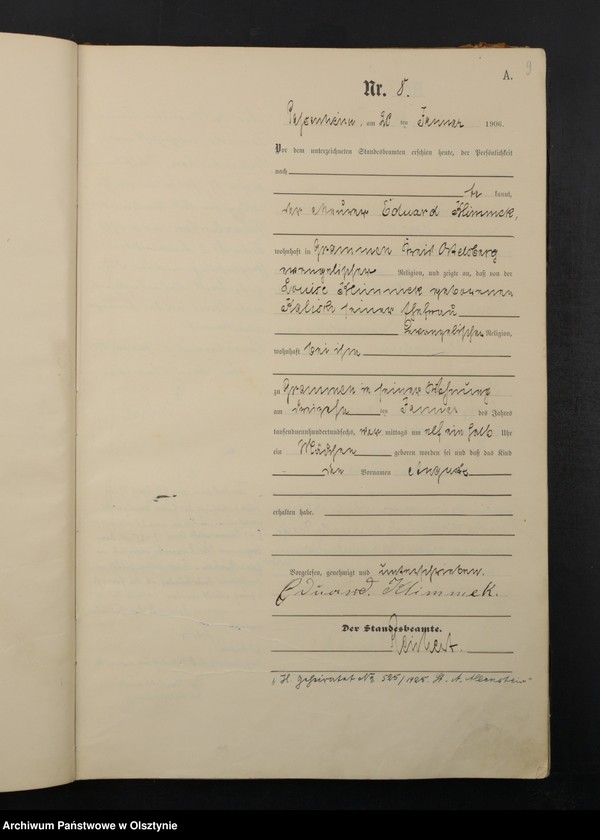 9
A.
Nr. 8.
Passenheim, am 20 ten Januar 1906.
Vor dem unterzeichneten Standesbeamten erschien heute, der Persönlichkeit
nach
be kannt,
der Maurer Eduard Klimmek,
wohnhaft in Grammen Kreis Ortelsburg
evangelischer Religion, und zeigte an, daß von der
Louise Klimmek geborenen
seiner Ehefrau
Evangelischer Religion,
wohnhaft bei ihm
zu Grammen in seiner Wohnung
am ten Januar des Jahres
tausendneunhundertundsechs, vor mittags um elf ein halb Uhr
ein Mädchen geboren worden sei und daß das Kind
den Vornamen
erhalten habe.
Vorgelesen, genehmigt und unterschrieben.
Eduard Klimmek.
Der Standesbeamte.
Reichert.
geheiratet No 525/1925. St. A. Allenstein
Archiwum Państwowe w Olsztynie